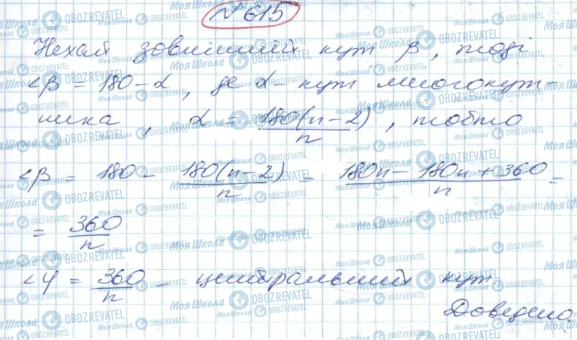 №615
Нехай зовнішній кут β, тоді
∠β = 180 - α, де α - кут многокут-
ника, α = 180(n-2)/n, тобто
∠β = 180 - 180(n-2)/n = (180n - 180n + 360)/n =
= 360/n
∠φ = 360/n - центральний кут
Доведено.